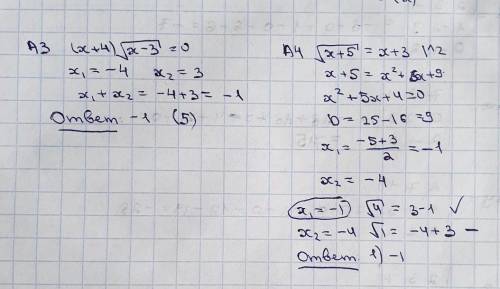 А3 (x+4)√(x-3) = 0
x₁ = -4 x₂ = 3
x₁ + x₂ = -4+3 = -1
Ответ -1 (5)
А4 √(x+5) = x+3 |^2
x+5 = x²+6x+9
x²+5x+4=0
D = 25-16 =9
x₁ = (-5+3)/2 = -1
x₂ = -4
x₁ = -1 √4 = 3-1 ✓
x₂ = -4 √1 = -4+3 —
Ответ 1) -1